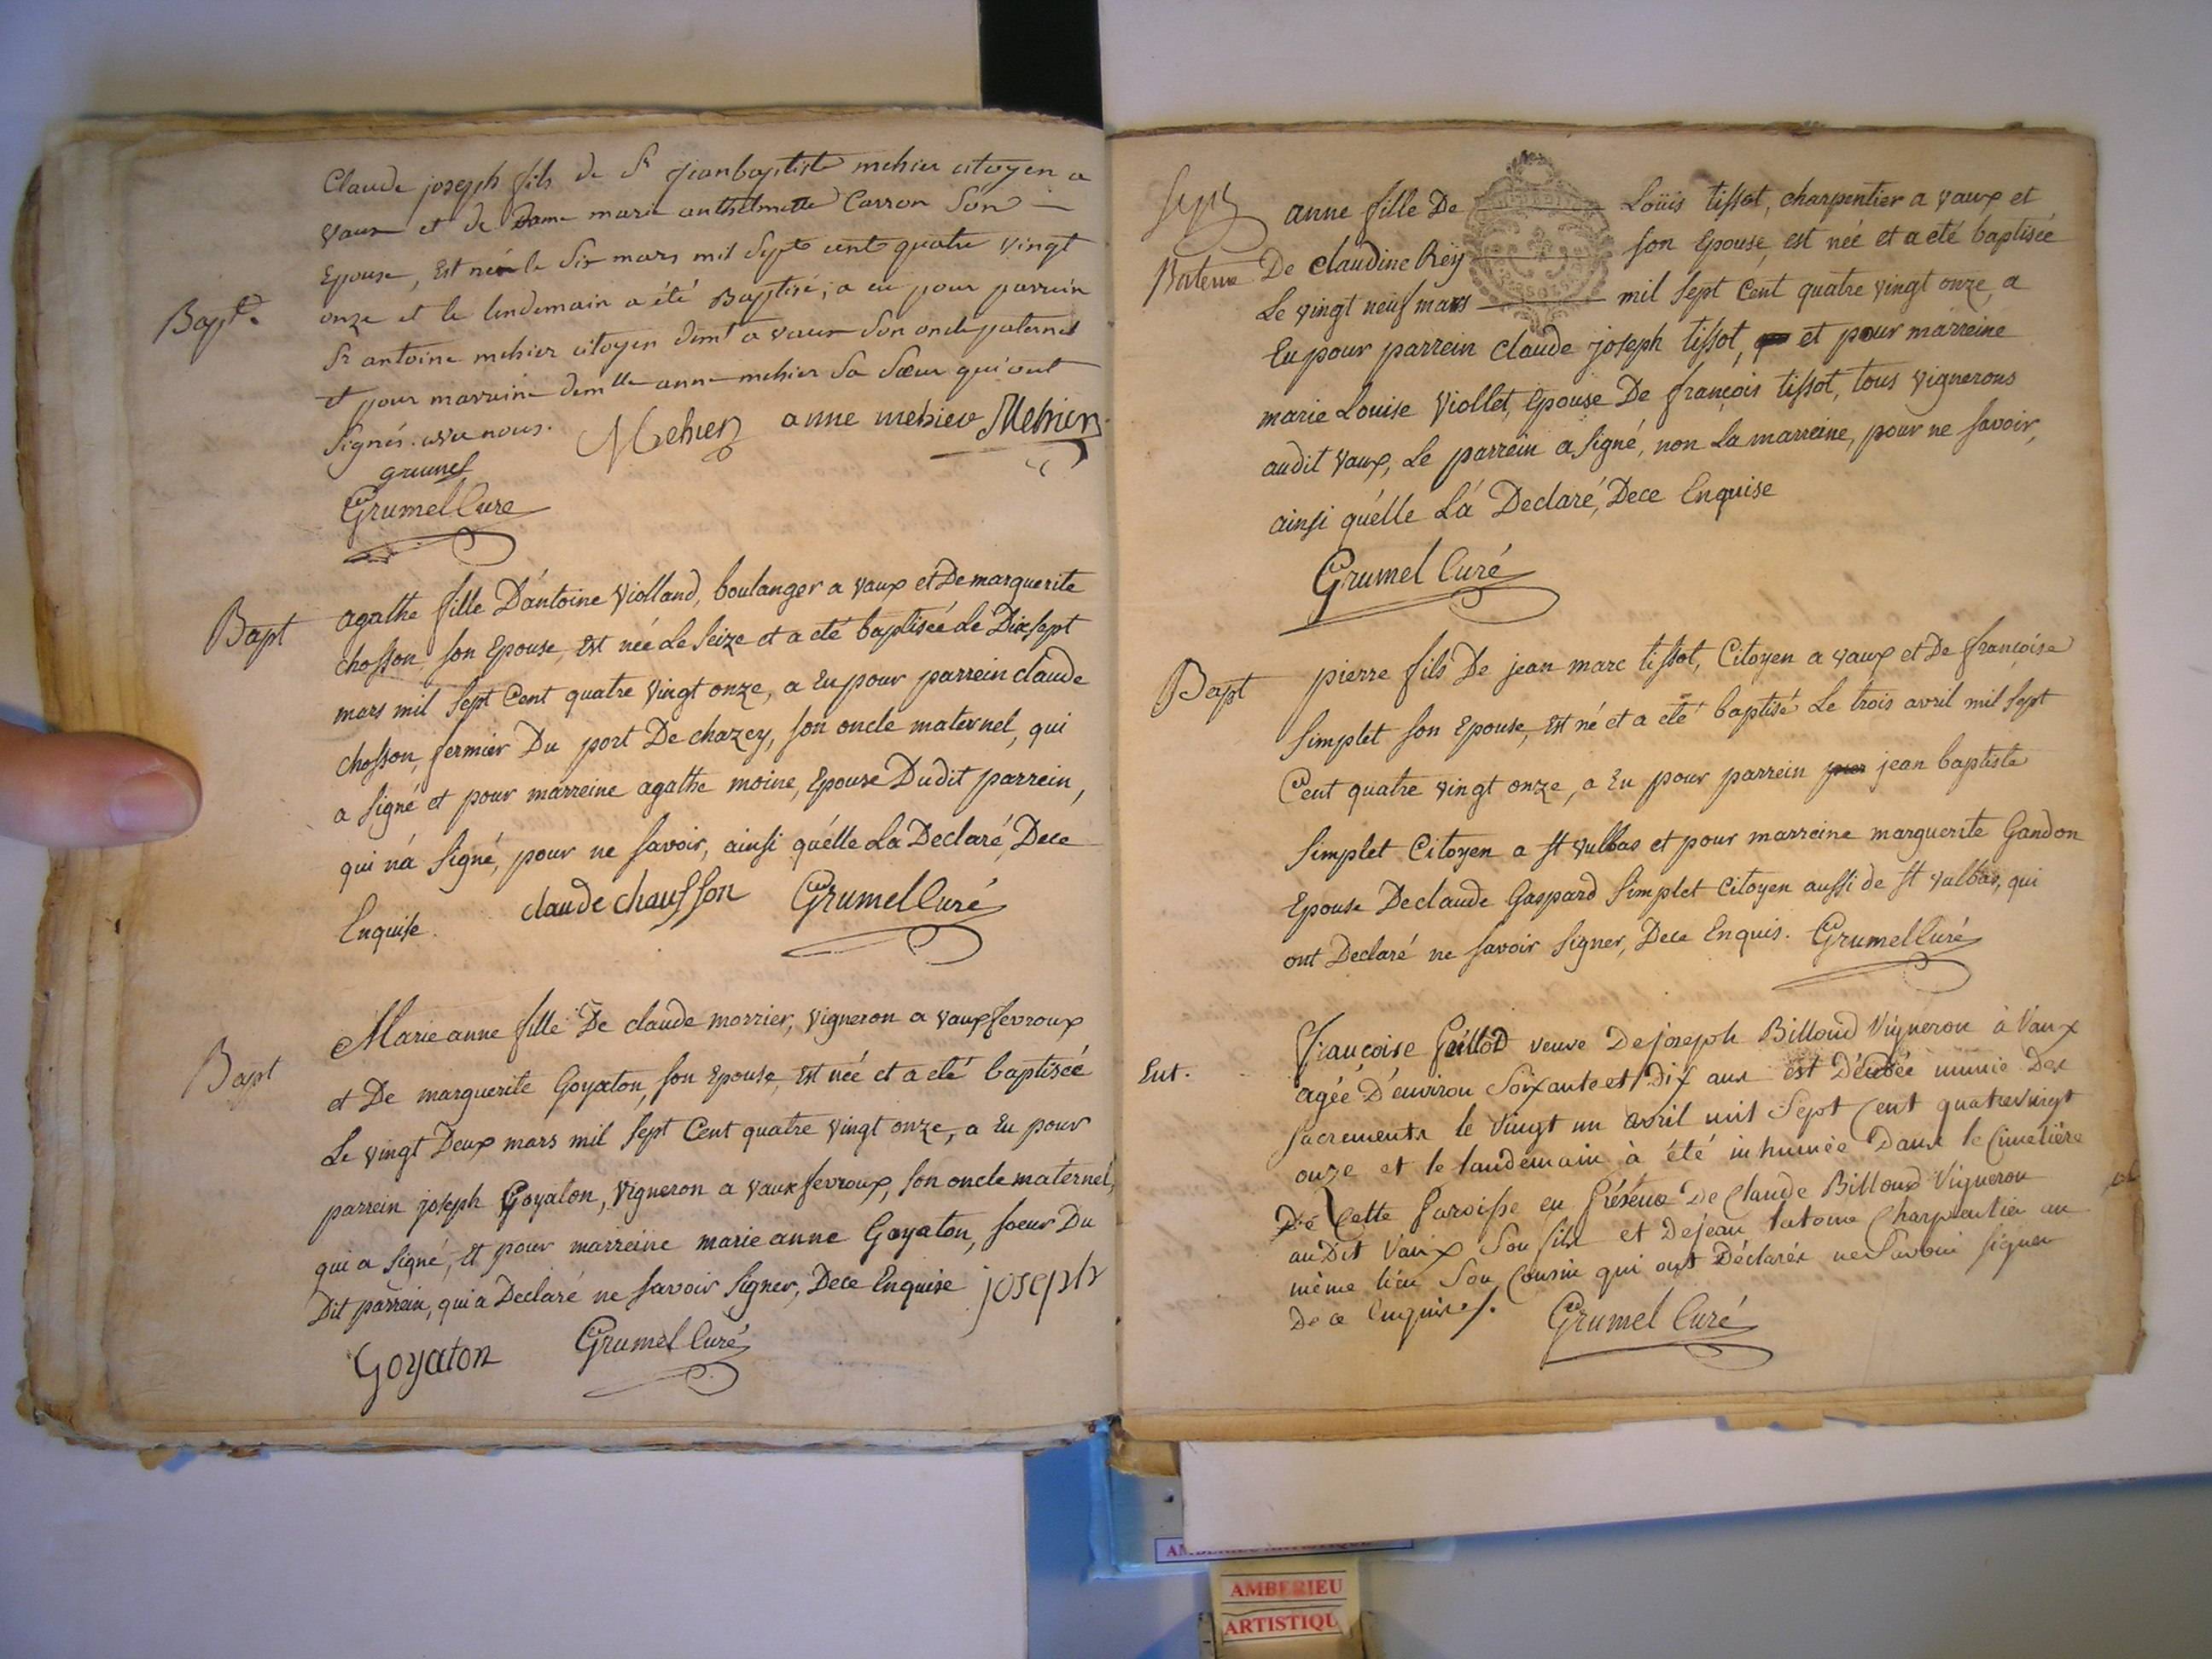 Claude joseph fils de Sr jeanbaptiste mehier citoyen a
vaux et de dame marie anthelmette Carron Son
Epouse, Est né le Six mars mil Sept cent quatre vingt
onze et le lendemain a été Baptisé; a eu pour parrein
Bapt.
Sr antoine mehier citoyen demt a vaux Son oncle paternel
et pour marraine demlle anne mehier Sa Sœur qui ont
Signés avec nous. Mehier anne mehiev Mehier
grumel
Grumel Cure
Bapt
agathe fille D'antoine Violland, boulanger a vaux et De marguerite
chosson, son Epouse, Est née Le Seize et a eté baptisée Le Dix sept
mars mil Sept Cent quatre Vingt onze, a Eu pour parrein claude
chosson, fermier Du port De chazey, son oncle maternel, qui
a signé et pour marreine agathe moine, Epouse Dudit parrein,
qui n'a signé, pour ne savoir, ainsi qu'elle La Declaré, Dece
Enquise. claude chausson Grumel Curé
Bapt
Marie anne fille De claude morrier, Vigneron a vaux fevroux
et De marguerite Goyaton, son Epouse, Est née et a eté baptisée
Le vingt Deux mars mil sept Cent quatre vingt onze, a Eu pour
parrein joseph Goyaton, Vigneron a vaux fevroux, son oncle maternel,
qui a signé, Et pour marreine marie anne Goyaton, soeur Du
Dit parrein, qui a Declaré ne savoir signer, Dece Enquise joseph
Goyaton Grumel Curé
Sept
anne fille De Loüis tissot, charpentier a vaux et
De claudine Reÿ son Epouse, est née et a eté baptisée
Le vingt neuf mars mil sept Cent quatre vingt onze, a
Eu pour parrein claude joseph tissot, et pour marreine
marie Louise Viollet, Epouse De françois tissot, tous vignerons
audit vaux, Le parrein a signé, non La marreine, pour ne savoir,
ainsi qu'elle L'a Declaré, Dece Enquise
Grumel Curé
Bapt
pierre fils De jean marc tissot, Citoyen a vaux et De françoise
simplet son Epouse, Est né et a eté baptisé Le trois avril mil sept
Cent quatre vingt onze, a Eu pour parrein jean baptiste
simplet Citoyen a st vulbas et pour marreine marguerite Gandon
Epouse De claude Gaspard simplet Citoyen aussi de st vulbas, qui
ont Declaré ne savoir signer, Dece Enquis. Grumel Curé
Ent.
françoise veuve De joseph Billoud Vigneron à Vaux
agée D'environ Soixante et Dix ans est Décédée munie Des
Sacrements le Vingt un avril mil Sept Cent quatrevingt
onze et le landemain à été inhumée Dans le Cimetière
De Cette Paroisse en Présence De Claude Billoud Vigneron
au Dit Vaux Son fils et De jean Charpentier au
même lieu Son Cousin qui ont Déclarés ne Savoir signer
De ce Enquises. Grumel Curé
AMBERIEU
ARTISTIQU